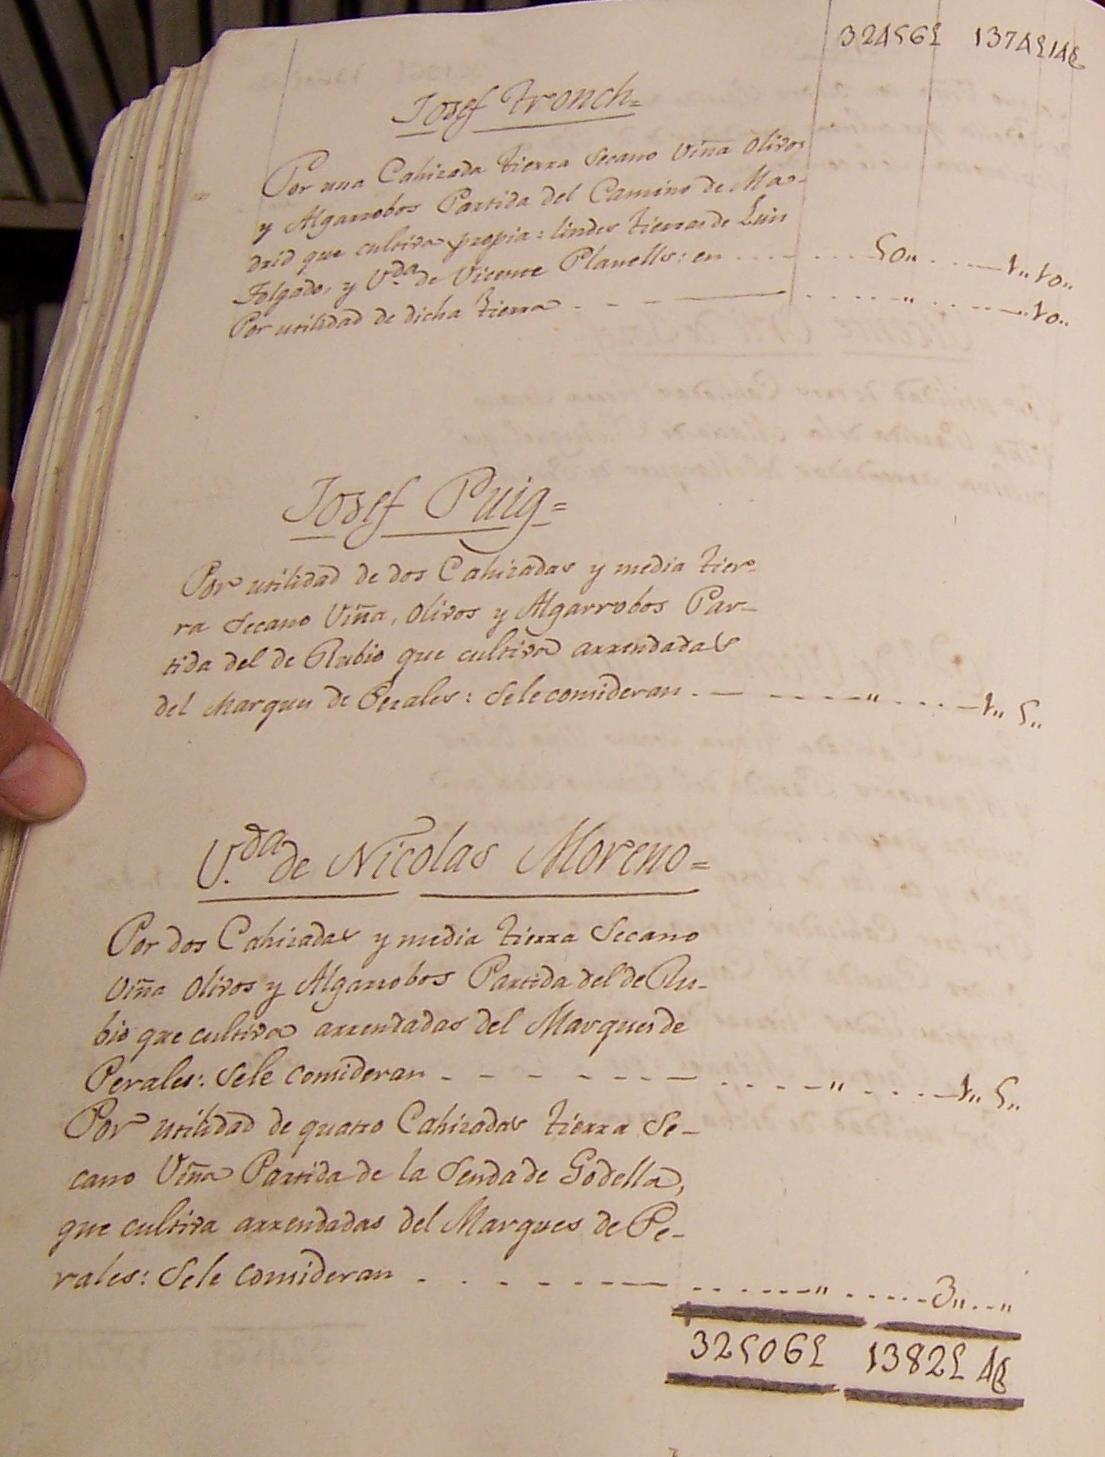 32456£ 1374£14ß
Josef Tronch=
Por una Cahizada tierra Secano Viña Olivos
y Algarrobos Partida del Camino de Ma-
drid que cultiva propia: lindes tierras de Luis
Folgado, y V.da de Vicente Planells: en ... 50,, ... 1,, 10,,
Por utilidad de dicha tierra ... ,, ... ,, 10,,
Josef Puig=
Por utilidad de dos Cahizadas y media tier-
ra Secano Viña, Olivos y Algarrobos Par-
tida del de Rubio que cultiva arrendadas
del Marques de Perales: Sele consideran ... ,, ... 1,, 5,,
V.da de Nicolas Moreno=
Por dos Cahizadas y media tierra Secano
Viña Olivos y Algarrobos Partida del de Ru-
bio que cultiva arrendadas del Marques de
Perales: Sele consideran ... ,, ... 1,, 5,,
Por utilidad de quatro Cahizadas tierra Se-
cano Viña Partida de la Senda de Godella,
que cultiva arrendadas del Marques de Pe-
rales: Sele consideran ... ,, ... 3,, ... ,,
32506£ 1382£ 4ß